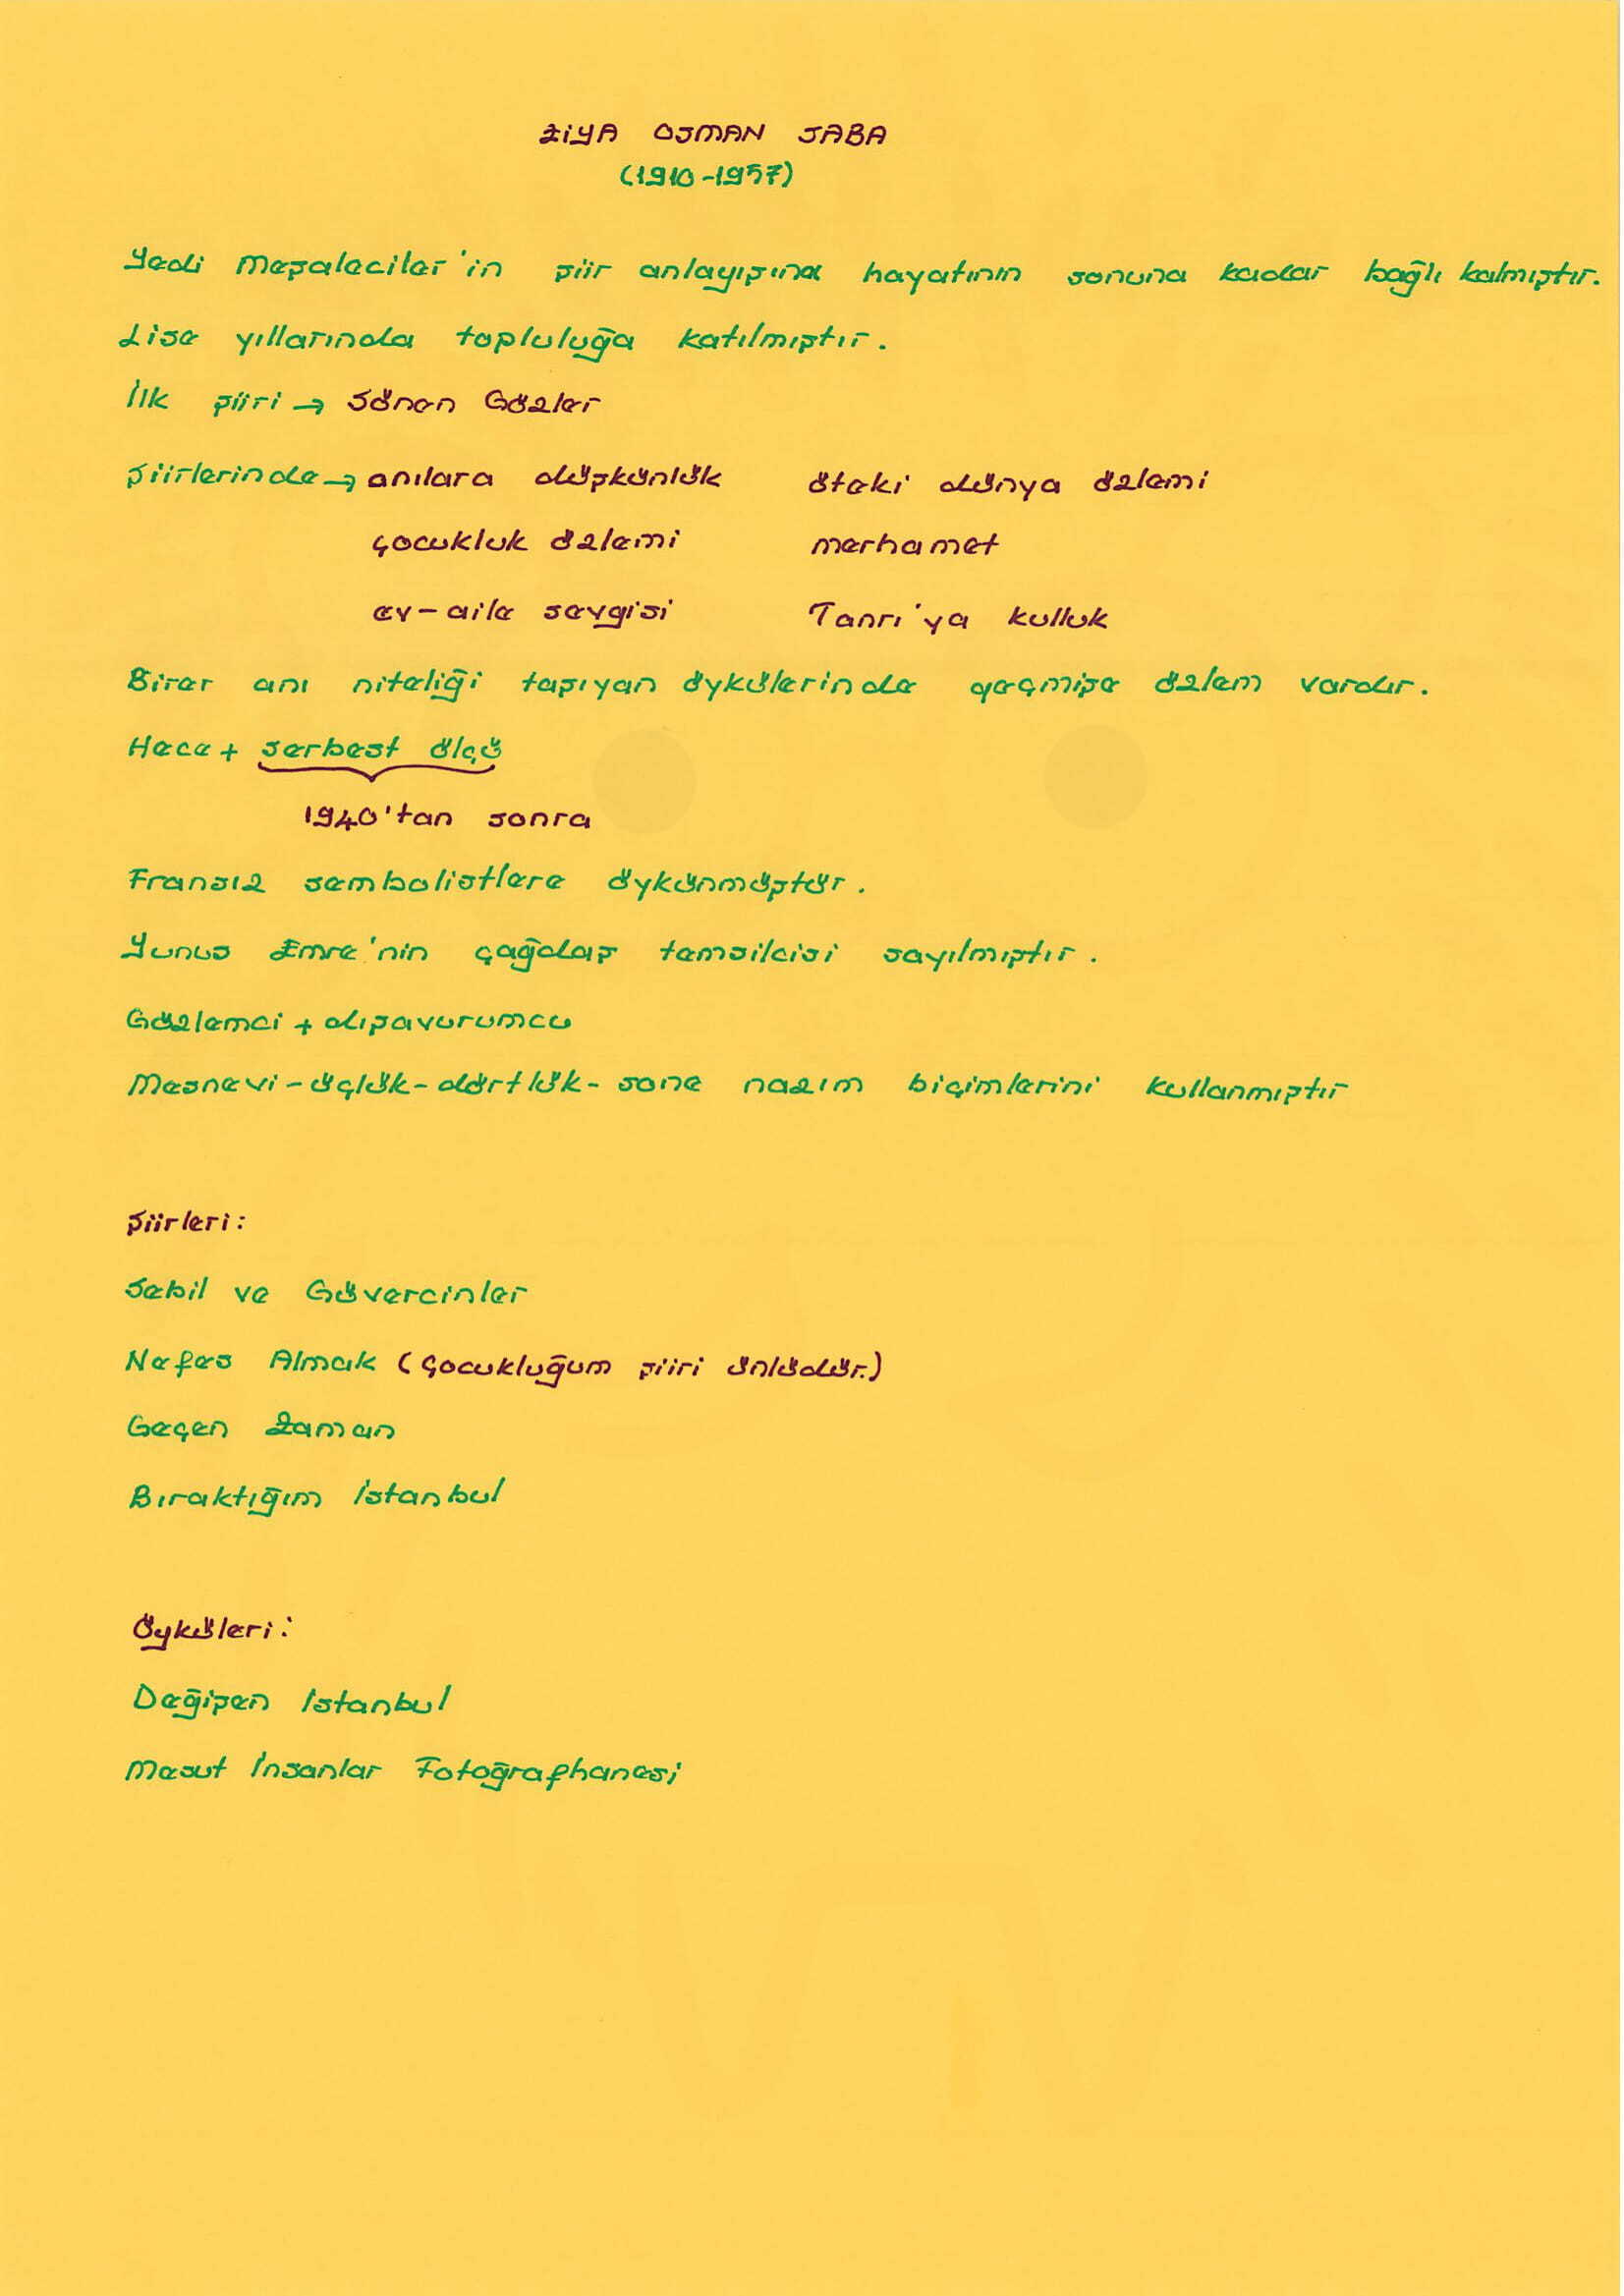 ZİYA OSMAN SABA
(1910-1957)
Yedi Meşaleciler'in şiir anlayışına hayatının sonuna kadar bağlı kalmıştır.
Lise yıllarında topluluğa katılmıştır.
İlk şiiri → Sönen Gözler
Şiirlerinde → anılara düşkünlük öteki dünya özlemi
çocukluk özlemi merhamet
ev-aile sevgisi Tanrı'ya kulluk
Birer anı niteliği taşıyan öykülerinde geçmişe özlem vardır.
Hece + serbest ölçü
1940'tan sonra
Fransız sembolistlere öykünmüştür.
Yunus Emre'nin çağdaş temsilcisi sayılmıştır.
Gözlemci + dışavurumcu
Mesnevi-üçlük-dörtlük-sone nazım biçimlerini kullanmıştır
Şiirleri:
Sebil ve Güvercinler
Nefes Almak (Çocukluğum şiiri ünlüdür.)
Geçen Zaman
Bıraktığım İstanbul
Öyküleri:
Değişen İstanbul
Mesut İnsanlar Fotoğrafhanesi